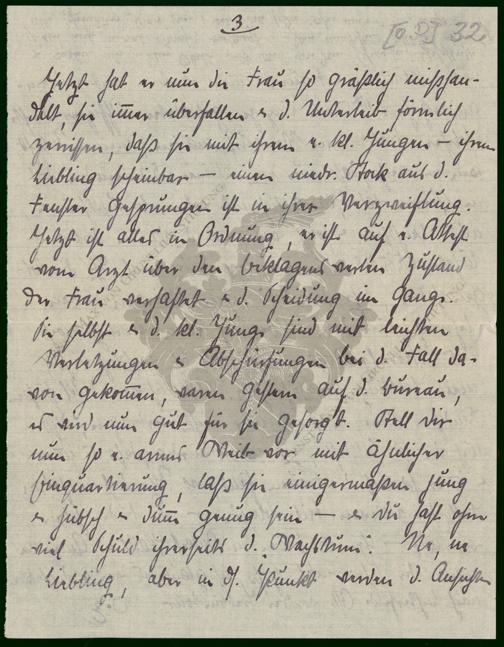 3
[o.D.] 32
Jetzt hat er nun die Frau so gräßlich mißhan-
delt, sie immer überfallen u. d. Unterleib förmlich
zerrissen, daß sie mit ihrem e. kl. Jungen – ihrem
Liebling scheinbar – einen niedr. Stock aus d.
Fenster gesprungen ist in ihrer Verzweiflung.
Jetzt ist alles in Ordnung, er ist auf e. Attest
vom Arzt über den beklagenswerten Zustand
der Frau verhaftet u. d. Scheidung im Gange.
Sie selbst u. d. kl. Junge sind mit leichten
Verletzungen u. Abschürfungen bei d. Fall da-
von gekommen, waren gestern auf d. Bureau,
es wird nun gut für sie gesorgt. Stell dir
nun so e. armes Weib vor mit ähnlicher
Einquartierung, laß sie einigermaßen jung
u. hübsch u. dumm genug sein – u. du hast ohne
viel Schuld ihrerseits d. „Wachstum“. Ne, ne
Liebling, aber in d. Punkt werden d. Ansichten